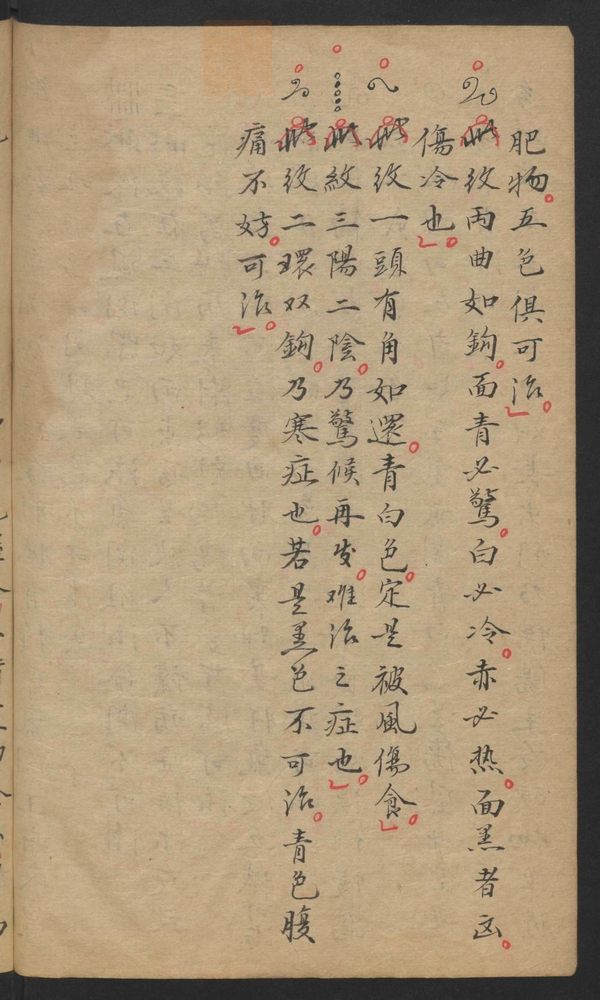 肥物。五色俱可治。
此紋两曲如鈎。面青必驚。白必冷。赤必热。面黑者凶。
傷冷也。
此紋一頭有角如還。青白色。定是被風傷食。
此紋三陽二陰。乃驚候再发。难治之症也。
此紋二環双鈎。乃寒症也。若是黑色不可治。青色腹
痛不妨。可治。